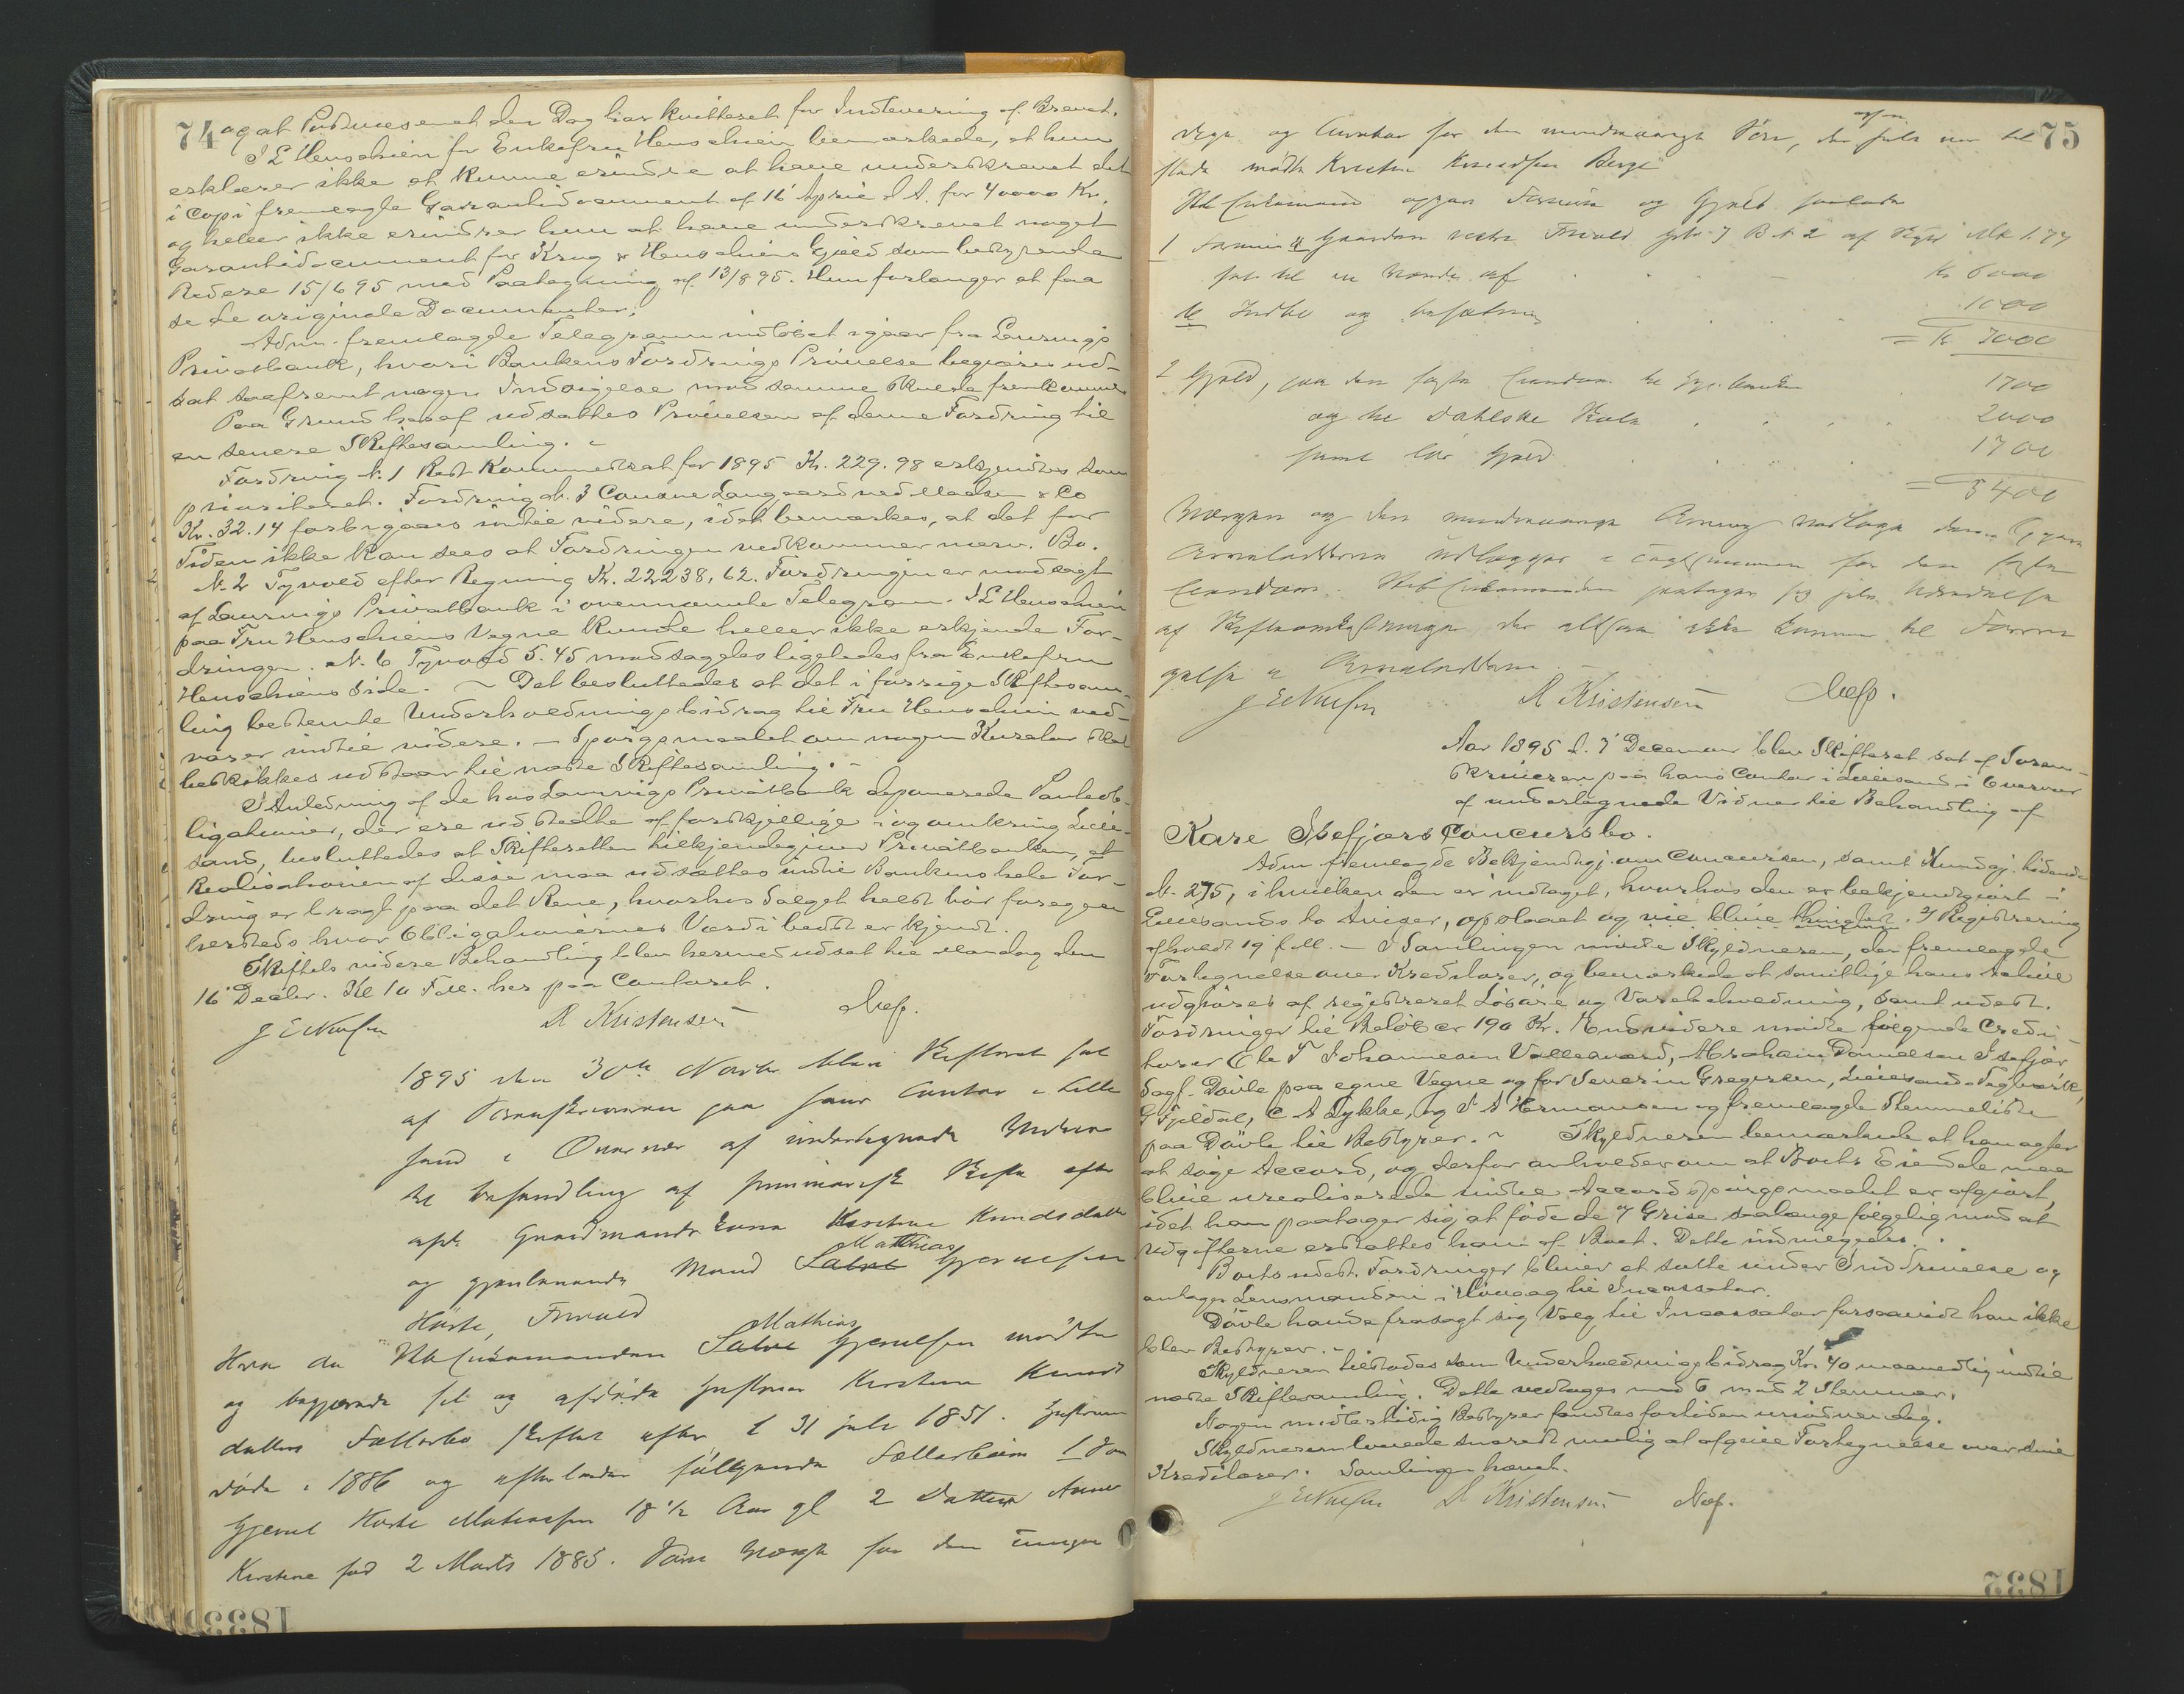 74
og at Postvæsenet den Dag har kvitteret for Indlevering af Brevet.
I E Henschien for Enkefru Henschien bemærkede, at hun
erklærer ikke at kunne erindre at have underskrevet det
i Copi fremlagte Garantidocument af 16 April d. A. for 40000 Kr.
og heller ikke erindrer hun at have underskrevet noget
Garantidocument for Krog & Henschiens Gjæld som bestyrende
Redere 15/6 95 med Paategning af 13/8 95. Hun forlanger at faa
se de originale Documenter.
Adm. fremlagde Telegram indløbet igaar fra Laurvigs
Privatbank, hvori Bankens Fordrings Prøvelse begjæres ud-
sat saafremt nogen Indsigelse mod samme skulde fremkomme
Paa Grund heraf udsattes Prøvelsen af denne Fordring til
en senere Skiftesamling. -
Fordring N. 1 Rest Kommuneskat for 1895 Kr. 229.98 erkjendtes som
prioriteret. Fordring N. 3 Langaard ved Madsen & Co
Kr. 32.14 forbigaaes indtil videre, idet bemærkes, at det for
Tiden ikke kan sees at Fordringen vedkommer nærv. Bo.
N. 2 Tyvold efter Regning Kr. 22238,62. Fordringen er modsagt
af Laurvigs Privatbank i ovennævnte Telegram. I E Henschien
paa Fru Henschiens Vegne kunde heller ikke erkjende For-
dringen. N. 6 Tyvold 5.45 modsagdes ligeledes fra Enkefru
Henschiens Side. - Det besluttedes at det i forrige Skiftesam-
ling bestemte Underholdningsbidrag til Fru Henschien ved-
varer indtil videre. - Spørgsmaalet om nogen Kurator skal
beskikkes udstaar til næste Skiftesamling. -
I Anledning af de hos Laurvigs Privatbank deponerede Panteob-
ligationer, der ere udstedte af forskjellige i og omkring Lille-
sand, besluttedes at Skifteretten tilkjendegiver Privatbanken, at
Realisationen af disse maa udsættes indtil Bankens hele For-
dring er bragt paa det Rene, hvorhos Salget helst bør foregaa
hersteds hvor Obligationernes Værdi bedst er kjendt.
Skiftets videre Behandling blev hermed udsat til Mandag den
16 Decbr. Kl 10 Form. her paa Contoret.
R Kristensen
1895 den 30te Novbr blev Skifteret sat
af Sorenskriveren paa hans Contor i Lille
sand i Overvær af undertegnede Vidner
til Behandling af summarisk Skifte efter
afd. Gaardmands Kone Kirstine Knudsdatter
Matthias
og gjenlevende Mand Salve Gjerulsen
Hørte,
Mathias
Hvor da Enkemanden Salve Gjerulsen mødte
og begjærede sit og afdøde Hustru Kirstine Knuds
datters Fællesbo skiftet efter L 31 juli 1851. Hustruen
døde i 1886 og efterlader følgende Fællesbørn 1 Søn
Gjerul Hørte Mathiassen 18 1/2 Aar gl 2 Datter Anne
Kirstine født 2 Marts 1885. Som Værge for den
75
Værge og Curator for den mindreaarige Søn, der selv var til
stede mødte Knudsen Berge
Enkemanden opgav Formue og Gjæld saaledes
1 Formue a Gaarden vestre B N. 2 af Skyld Mk 1.77
sat til en Værdi af Kr 6000
b Indbo og besætning 1000
= Kr 7000
2 Gjæld, paa den faste Eiendom til Hyp. banken 1700
og til Dahlske Skole 2000
samt løs Gjæld 1700
= 5400
Værgen og den mindreaarige Arving vedtage
Arveladeren udlægges i for den faste
Eiendom. Enkemanden paatager sig selv Udredelse
af Skifteomkostninger der altsaa ikke kommer til
R Kristensen
Aar 1895 d. 7 December blev Skifteret sat af Soren-
skriveren paa hans Contor i Lillesand i Overvær
af undertegnede Vidner til Behandling af
Kare Isefjærs Concursbo.
Adm. fremlagde Bekjendtgj. om Concursen, samt Kundgj. tidende
N. 275, i hvilken den er indtaget, hvorhos den er bekjendtgjort i
Lillesands to Aviser, opslaaet og vil blive thinglæst. Registrering
afholdt 19 f. M. - I Samlingen mødte Skyldneren, der fremlagde
Fortegnelse over Kreditorer, og bemærkede at samtlige hans Aktiva
udgjøres af registreret Løsøre og Varebeholdning, samt udest.
Fordringer til Beløb er 190 Kr. Endvidere mødte følgende Credi-
torer Ole T Johannesen Vallesværd, Abraham Danielsen Isefjær
Sagf. Døvle paa egne Vegne og for Severin Gregersen, Lillesands Teglværk,
G Fjeldal, C A Lykke, og I A Hermansen og fremlagde Stemmeliste
paa Døvle til Bestyrer. - Skyldneren bemærkede at han agter
at søge Accord, og derfor anholder om at Boets Eiendele maa
blive urealiserede indtil Accordspørgsmaalet er afgjort,
idet han paatager sig at føde de 7 Grise saalænge følgelig mod at
Udgifterne erstattes ham af Boet. Dette indvilgedes.
Boets udest. Fordringer bliver at sætte under Inddrivelse og
antages Lensmanden i Høvaag til Incassator.
Døvle havde frasagt sig Valg til Incassator forsaavidt han ikke
blev Bestyrer. -
Skyldneren tilstodes som Underholdningsbidrag Kr. 40 maanedlig indtil
næste Skiftesamling. Dette vedtoges med 6 mod 2 Stemmer.
Nogen midlertidig Bestyrer fandtes fortiden unødvendig.
Skyldneren lovede snarest mulig at afgive Fortegnelse over sine
Kreditorer. Samlingen hævet.
R Kristensen